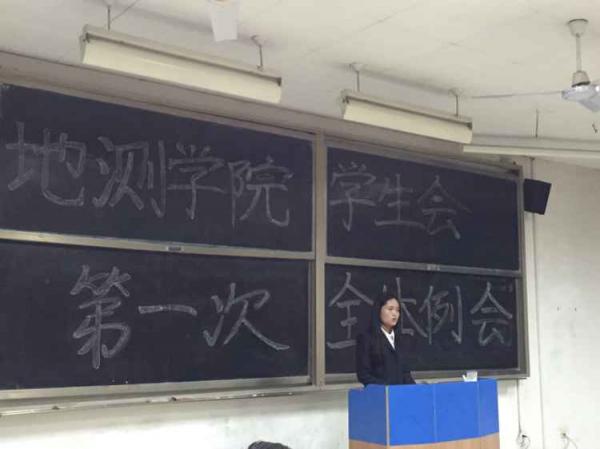 地测学院 学生会
第一次 全体例会